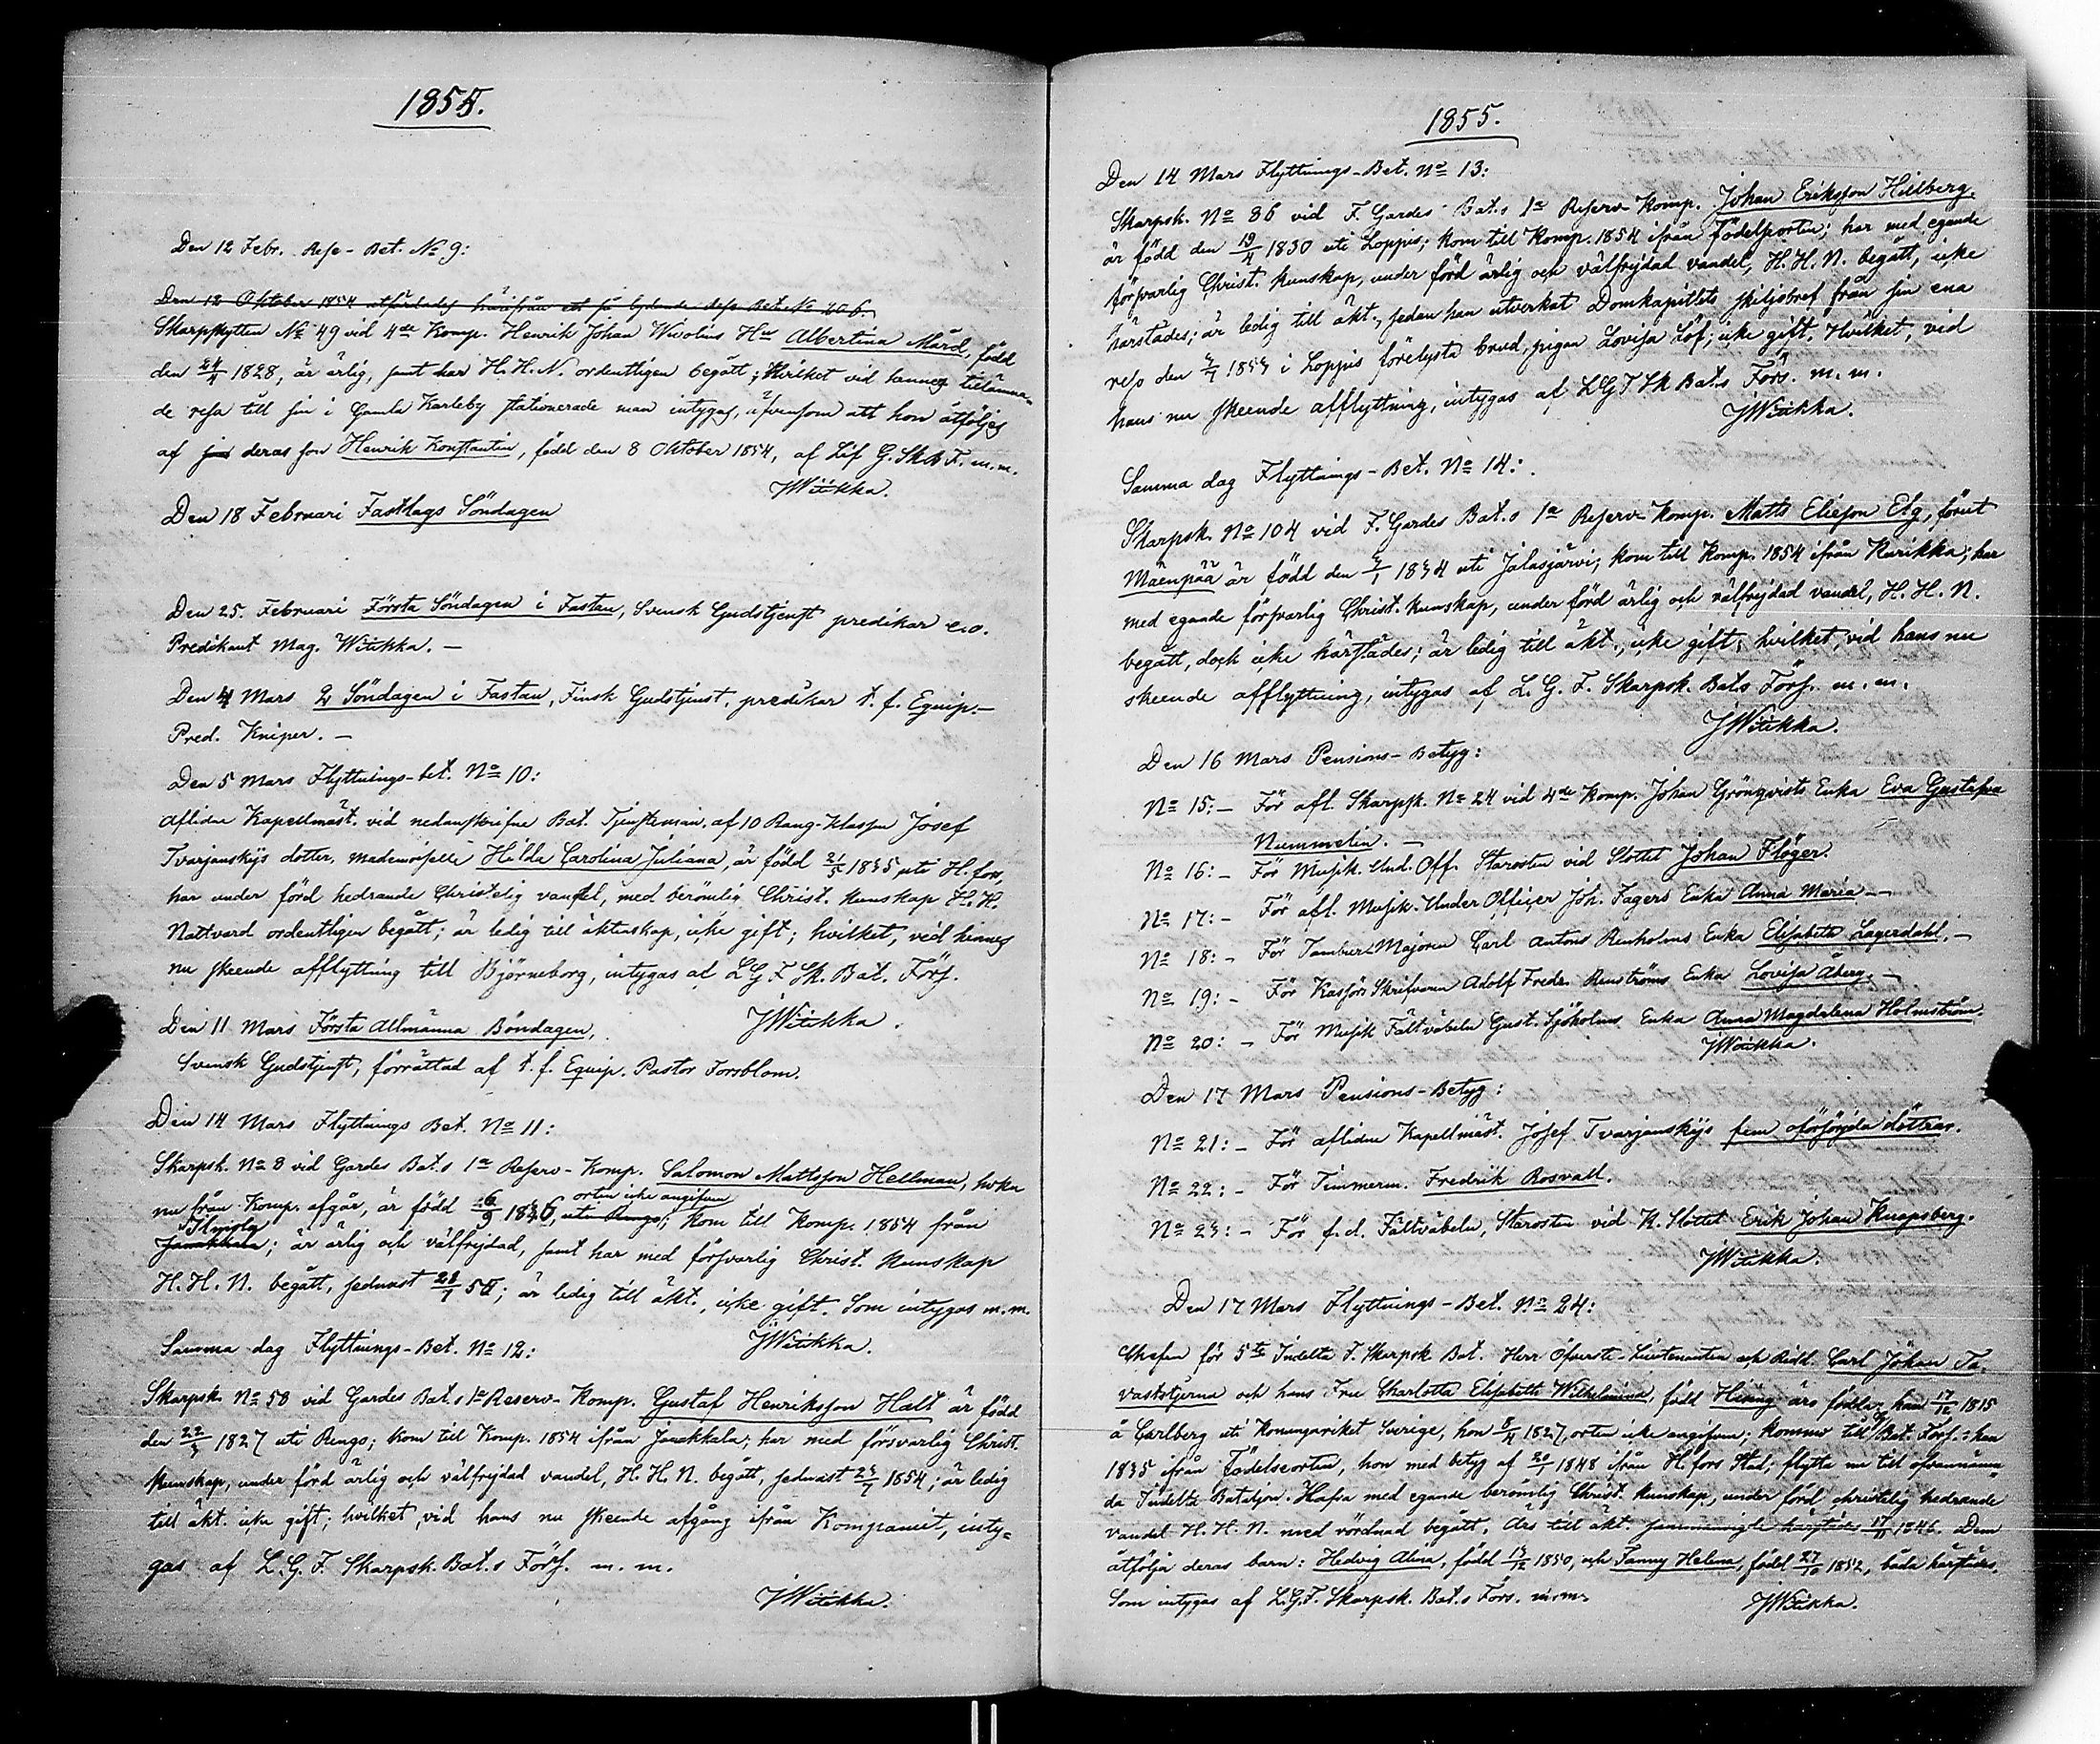 1855.
Den 12 Febr. Rese-Bet. No 9:
Den 12 Oktober 1854 utfärdades härifrån ett så lydande Rese Bet. No 206.
Skarpskytten No 49 vid 4de Komp. Henrik Johan Wivolins Hu Albertina Mård, född
den 24/4 1828, är ärlig, samt har H. H. N. ordentligen begått; Hvilket vid hennes tillämna-
de resa till sin i Gamla Karleby stationerade man intygas, äfvensom att hon åtföljes
af deras son Henrik Konstantin, född den 8 Oktober 1854, af Lif G. Sk. B. F. m. m.
JWitikka.
Den 18 Februari Fastlags Söndagen
Den 25. Februari Första Söndagen i Fastan, Svensk Gudstjenst predikar e.o.
Predikant Mag. Witikka. —
Den 4 Mars 2 Söndagen i Fastan, Finsk Gudstjenst, predikar t. f. Equip.-
Pred. Kniper. —
Den 5 Mars Flyttnings-bet. No 10:
Aflidne Kapellmäst. vid nedanskrifne Bat. Tjensteman af 10 Rang-Klassen Josef
Tvarjanskijs dotter, mademoiselle Hilda Carolina Juliana, är född 21/5 1835, uti H.fors,
har under förd hedrande Christelig vandel, med berömlig Christ. kunskap H. H.
Nattvard ordentligen begått; är ledig till äktenskap, icke gift; hvilket, vid hennes
nu skeende afflyttning till Björneborg, intygas af L G. F. Sk. Bat. Förs.
JWitikka.
Den 11 Mars Första Allmänna Böndagen,
Svensk Gudstjenst, förrättad af t. f. Equip. Pastor Forsblom.
Den 14 Mars Flyttnings Bet. No 11:
Skarpsk. No 8 vid Gardes Bat.s 1a Reserv-Komp. Salomon Mattsson Hellman, hvka
orten icke angifven
nu från Komp. afgår, är född 6/9 1836, uti Rengo; kom till Komp. 1854 från
Ilmola
Janakkala; är ärlig och välfrejdad, samt har med försvarlig Christ. kunskap
H. H. N. begått, sednast 23/7 54; är ledig till äkt., icke gift. Som intygas m. m.
JWitikka.
Samma dag Flyttnings-Bet. No 12:
Skarpsk. No 58 vid Gardes Bat.s 1a Reserv-Komp. Gustaf Henriksson Halt är född
den 22/3 1827 uti Rengo; kom till Komp. 1854 ifrån Janakkala; har med försvarlig Christ.
kunskap, under förd ärlig och välfrejdad vandel, H. H. N. begått, sednast 23/7 1854; är ledig
till äkt. icke gift; hvilket, vid hans nu skeende afgång ifrån Kompaniet, inty-
gas af L. G. F. Skarpsk. Bat.s Förs. m. m.
JWitikka.
1855.
Den 14 Mars Flyttnings-Bet. No 13:
Skarpsk. No 86 vid F. Gardes Bat.s 1a Reserv Komp. Johan Eriksson Hillberg,
är född den 19/4 1830 uti Loppis; kom till Komp. 1854 ifrån Födelseorten; har med egande
försvarlig Christ. kunskap, under förd ärlig och välfrejdad vandel, H. H. N. begått, icke
härstädes; är ledig till äkt., sedan han utverkat Domkapitlets skiljobref från sin ena
reso den 3/7 1853 i Loppis förelysta brud, pigan Lovisa Löf; icke gift. Hvilket, vid
hans nu skeende afflyttning, intygas af L G F Sk Bat.s Förs. m. m.
JWitikka.
Samma dag Flyttnings-Bet. No 14:
Skarpsk. No 104 vid F. Gardes Bat.s 1a Reserv Komp. Matts Eliesson Elg, förut
Mäenpää är född den 3/1 1834 uti Jalasjärvi; kom till Komp. 1854 ifrån Kurikka; har
med egande försvarlig Christ. kunskap, under förd ärlig och välfrejdad vandel, H. H. N.
begått, dock icke härstädes; är ledig till äkt., icke gift; hvilket, vid hans nu
skeende afflyttning, intygas af L. G. F. Skarpsk. Bat.s Förs. m. m.
JWitikka.
Den 16 Mars Pensions-Betyg:
No 15: — För afl. Skarpsk. No 24 vid 4de Komp. Johan Grönqvists Enka Eva Gustafva
Nummelin. —
No 16: — För Musik. Und. Off. Starosten vid Slottet Johan Flöger.
No 17: — För afl. Musik-Under Officer Joh. Fagers Enka Anna Maria —
No 18: — För Tambur-Majoren Carl Antons Renholms Enka Elisabeth Lagerdahl. —
No 19: — För Kassörs Skrifvaren Adolf Fredr. Renströms Enka Lovisa Åberg. —
No 20: — För Musik Fältväbeln Gust. Sjöholms Enka Anna Magdalena Holmström.
JWitikka.
Den 17 Mars Pensions-Betyg:
No 21: — För aflidne Kapellmäst. Josef Tvarjanskijs fem oförsörjda döttrar.
No 22: — För Timmerm. Fredrik Rosvall.
No 23: — För f.d. Fältväbeln, Starosten vid K. Slottet Erik Johan Knapsberg.
JWitikka.
Den 17 Mars Flyttnings-Bet. No 24:
Chefen för 5te Indelta F. Skarpsk Bat. Herr Öfverste-Lieutenanten och Ridd. Carl Johan Ta-
vaststjerna och hans Fru Charlotta Elisabeth Wilhelmina, född Hising äro födda: han 17/12 1815
å Carlberg uti Konungariket Sverige, hon 8/4 1827, orten icke angifven; kommo till Bat. Förs.: han
1835 ifrån Födelseorten, hon med betyg af 20/1 1848 ifrån H.fors Stad; flytta nu till ofvannämn-
da Indelta Bataljon. Hafva med egande berömlig Christ. kunskap, under förd christelig hedrande
vandel H. H. N. med vördnad begått. Äro till äkt. sammanvigde härstädes 17/11 1846. Dem
åtfölja deras barn: Hedvig Alina, född 13/12 1850, och Fanny Helena, född 27/10 1852, båda härstädes.
Som intygas af L.G.F. Skarpsk. Bat.s Förs. m.m.
JWitikka.